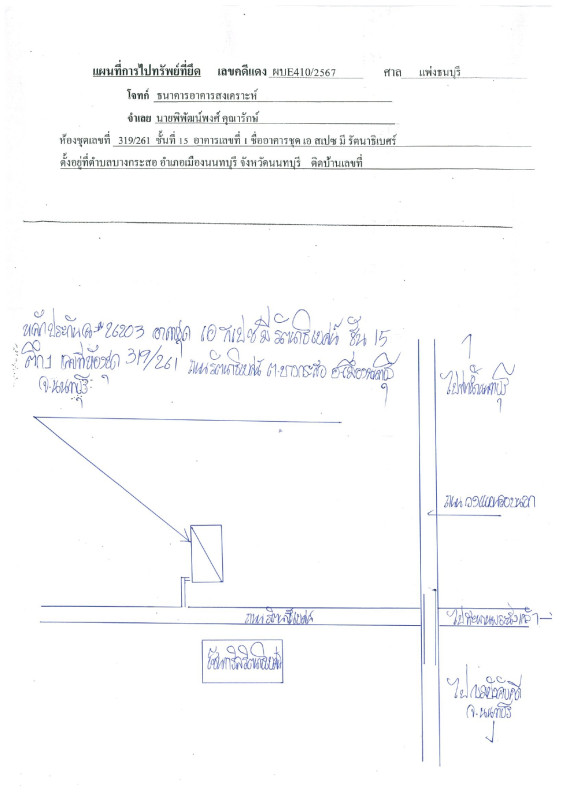 แผนที่การไปทรัพย์ที่ยึด เลขคดีแดง ผบE410/2567 ศาล แพ่งธนบุรี
โจทก์ ธนาคารอาคารสงเคราะห์
จำเลย นายพิพัฒน์พงศ์ คุณารักษ์
ห้องชุดเลขที่ 319/261 ชั้นที่ 15 อาคารเลขที่ 1 ชื่ออาคารชุด เอ สเปซ มี รัตนาธิเบศร์
ตั้งอยู่ที่ตำบลบางกระสอ อำเภอเมืองนนทบุรี จังหวัดนนทบุรี ติดบ้านเลขที่
หลักประกัน # 26203 อาคารชุด เอ สเปซ มี รัตนาธิเบศน์ ชั้น 15
ตึก 1 เลขที่ห้องชุด 319/261 ถนนรัตนาธิเบศน์ ต.บางกระสอ อ.เมืองนนทบุรี
จ.นนทบุรี
ถนน
ถนนรัตนาธิเบศน์
ไปสะพานพระนั่งเกล้า
ไปบังคับคดี
จ.นนทบุรี